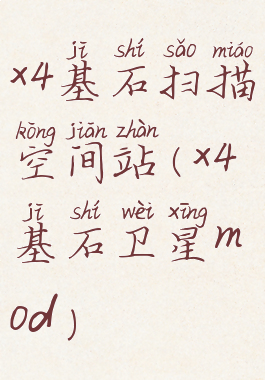 jī shí sǎo miáo
x4基石扫描
kōng jiān zhàn
空间站(x4
jī shí wèi xīng
基石卫星m
od)